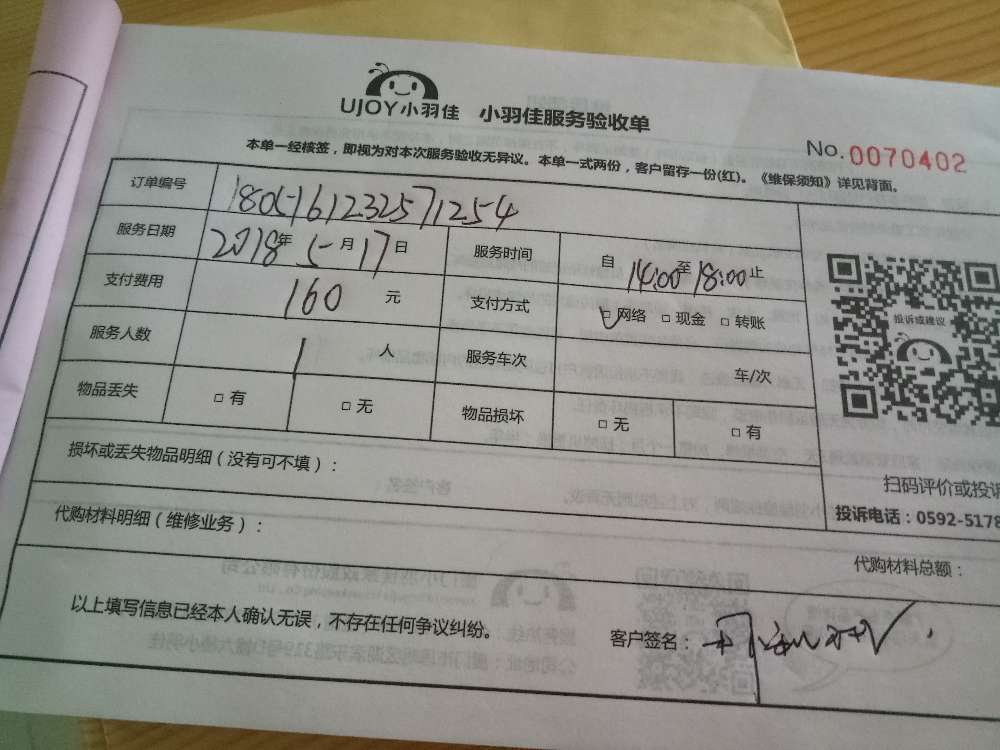 UJOY小羽佳 小羽佳服务验收单
No.0070402
本单一经核签，即视为对本次服务验收无异议。本单一式两份，客户留存一份(红)。《维保须知》详见背面。
订单编号 1805161232571254
服务日期 2018年5月17日 服务时间 自14:00至18:00止
支付费用 160 元 支付方式 □网络 □现金 □转账
投诉或建议
服务人数 1 人 服务车次 车/次
物品丢失 □有 □无 物品损坏 □无 □有
损坏或丢失物品明细（没有可不填）：
扫码评价或投诉
投诉电话：0592-5178
代购材料明细（维修业务）：
代购材料总额：
以上填写信息已经本人确认无误，不存在任何争议纠纷。
客户签名：